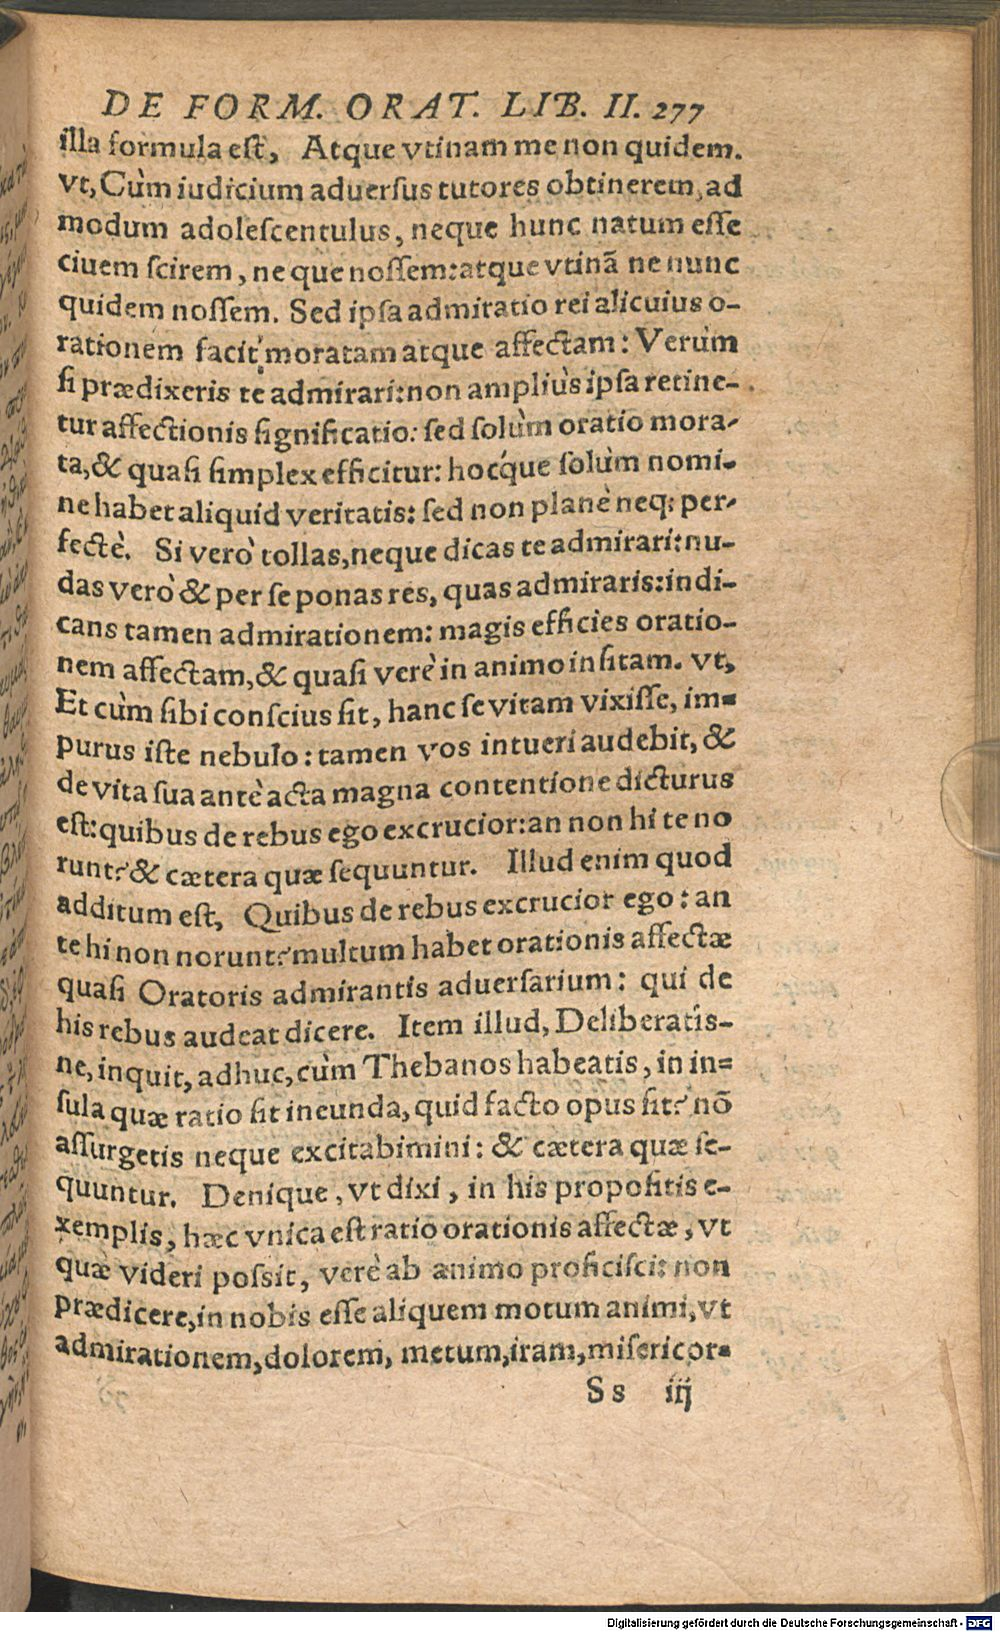 DE FORM. ORAT. LIB. II. 277
illa formula est, Atque vtinam me non quidem.
vt, Cùm iudicium aduersus tutores obtinerem, ad
modum adolescentulus, neque hunc natum esse
ciuem scirem, ne que nossem: atque vtinã ne nunc
quidem nossem. Sed ipsa admiratio rei alicuius o-
rationem facit moratam atque affectam: Verùm
si prædixeris te admirari: non ampliùs ipsa retine-
tur affectionis significatio: sed solùm oratio mora-
ta, & quasi simplex efficitur: hocq́ue solùm nomi-
ne habet aliquid veritatis: sed non planè neq; per-
fectè. Si verò tollas, neque dicas te admirari: nu-
das verò & per se ponas res, quas admiraris: indi-
cans tamen admirationem: magis efficies oratio-
nem affectam, & quasi verè in animo insitam. vt,
Et cùm sibi conscius sit, hanc se vitam vixisse, im-
purus iste nebulo: tamen vos intueri audebit, &
de vita sua antè acta magna contentione dicturus
est: quibus de rebus ego excrucior: an non hi te no
runt? & cætera quæ sequuntur. Illud enim quod
additum est, Quibus de rebus excrucior ego: an
te hi non norunt? multum habet orationis affectæ
quasi Oratoris admirantis aduersarium: qui de
his rebus audeat dicere. Item illud, Deliberatis-
ne, inquit, adhuc, cùm Thebanos habeatis, in in-
sula quæ ratio sit ineunda, quid facto opus sit? nõ
assurgetis neque excitabimini: & cætera quæ se-
quuntur. Denique, vt dixi, in his propositis e-
xemplis, hæc vnica est ratio orationis affectæ, vt
quæ videri possit, verè ab animo proficisci: non
prædicere, in nobis esse aliquem motum animi, vt
admirationem, dolorem, metum, iram, misericor-
Ss iij
Digitalisierung gefördert durch die Deutsche Forschungsgemeinschaft - DFG